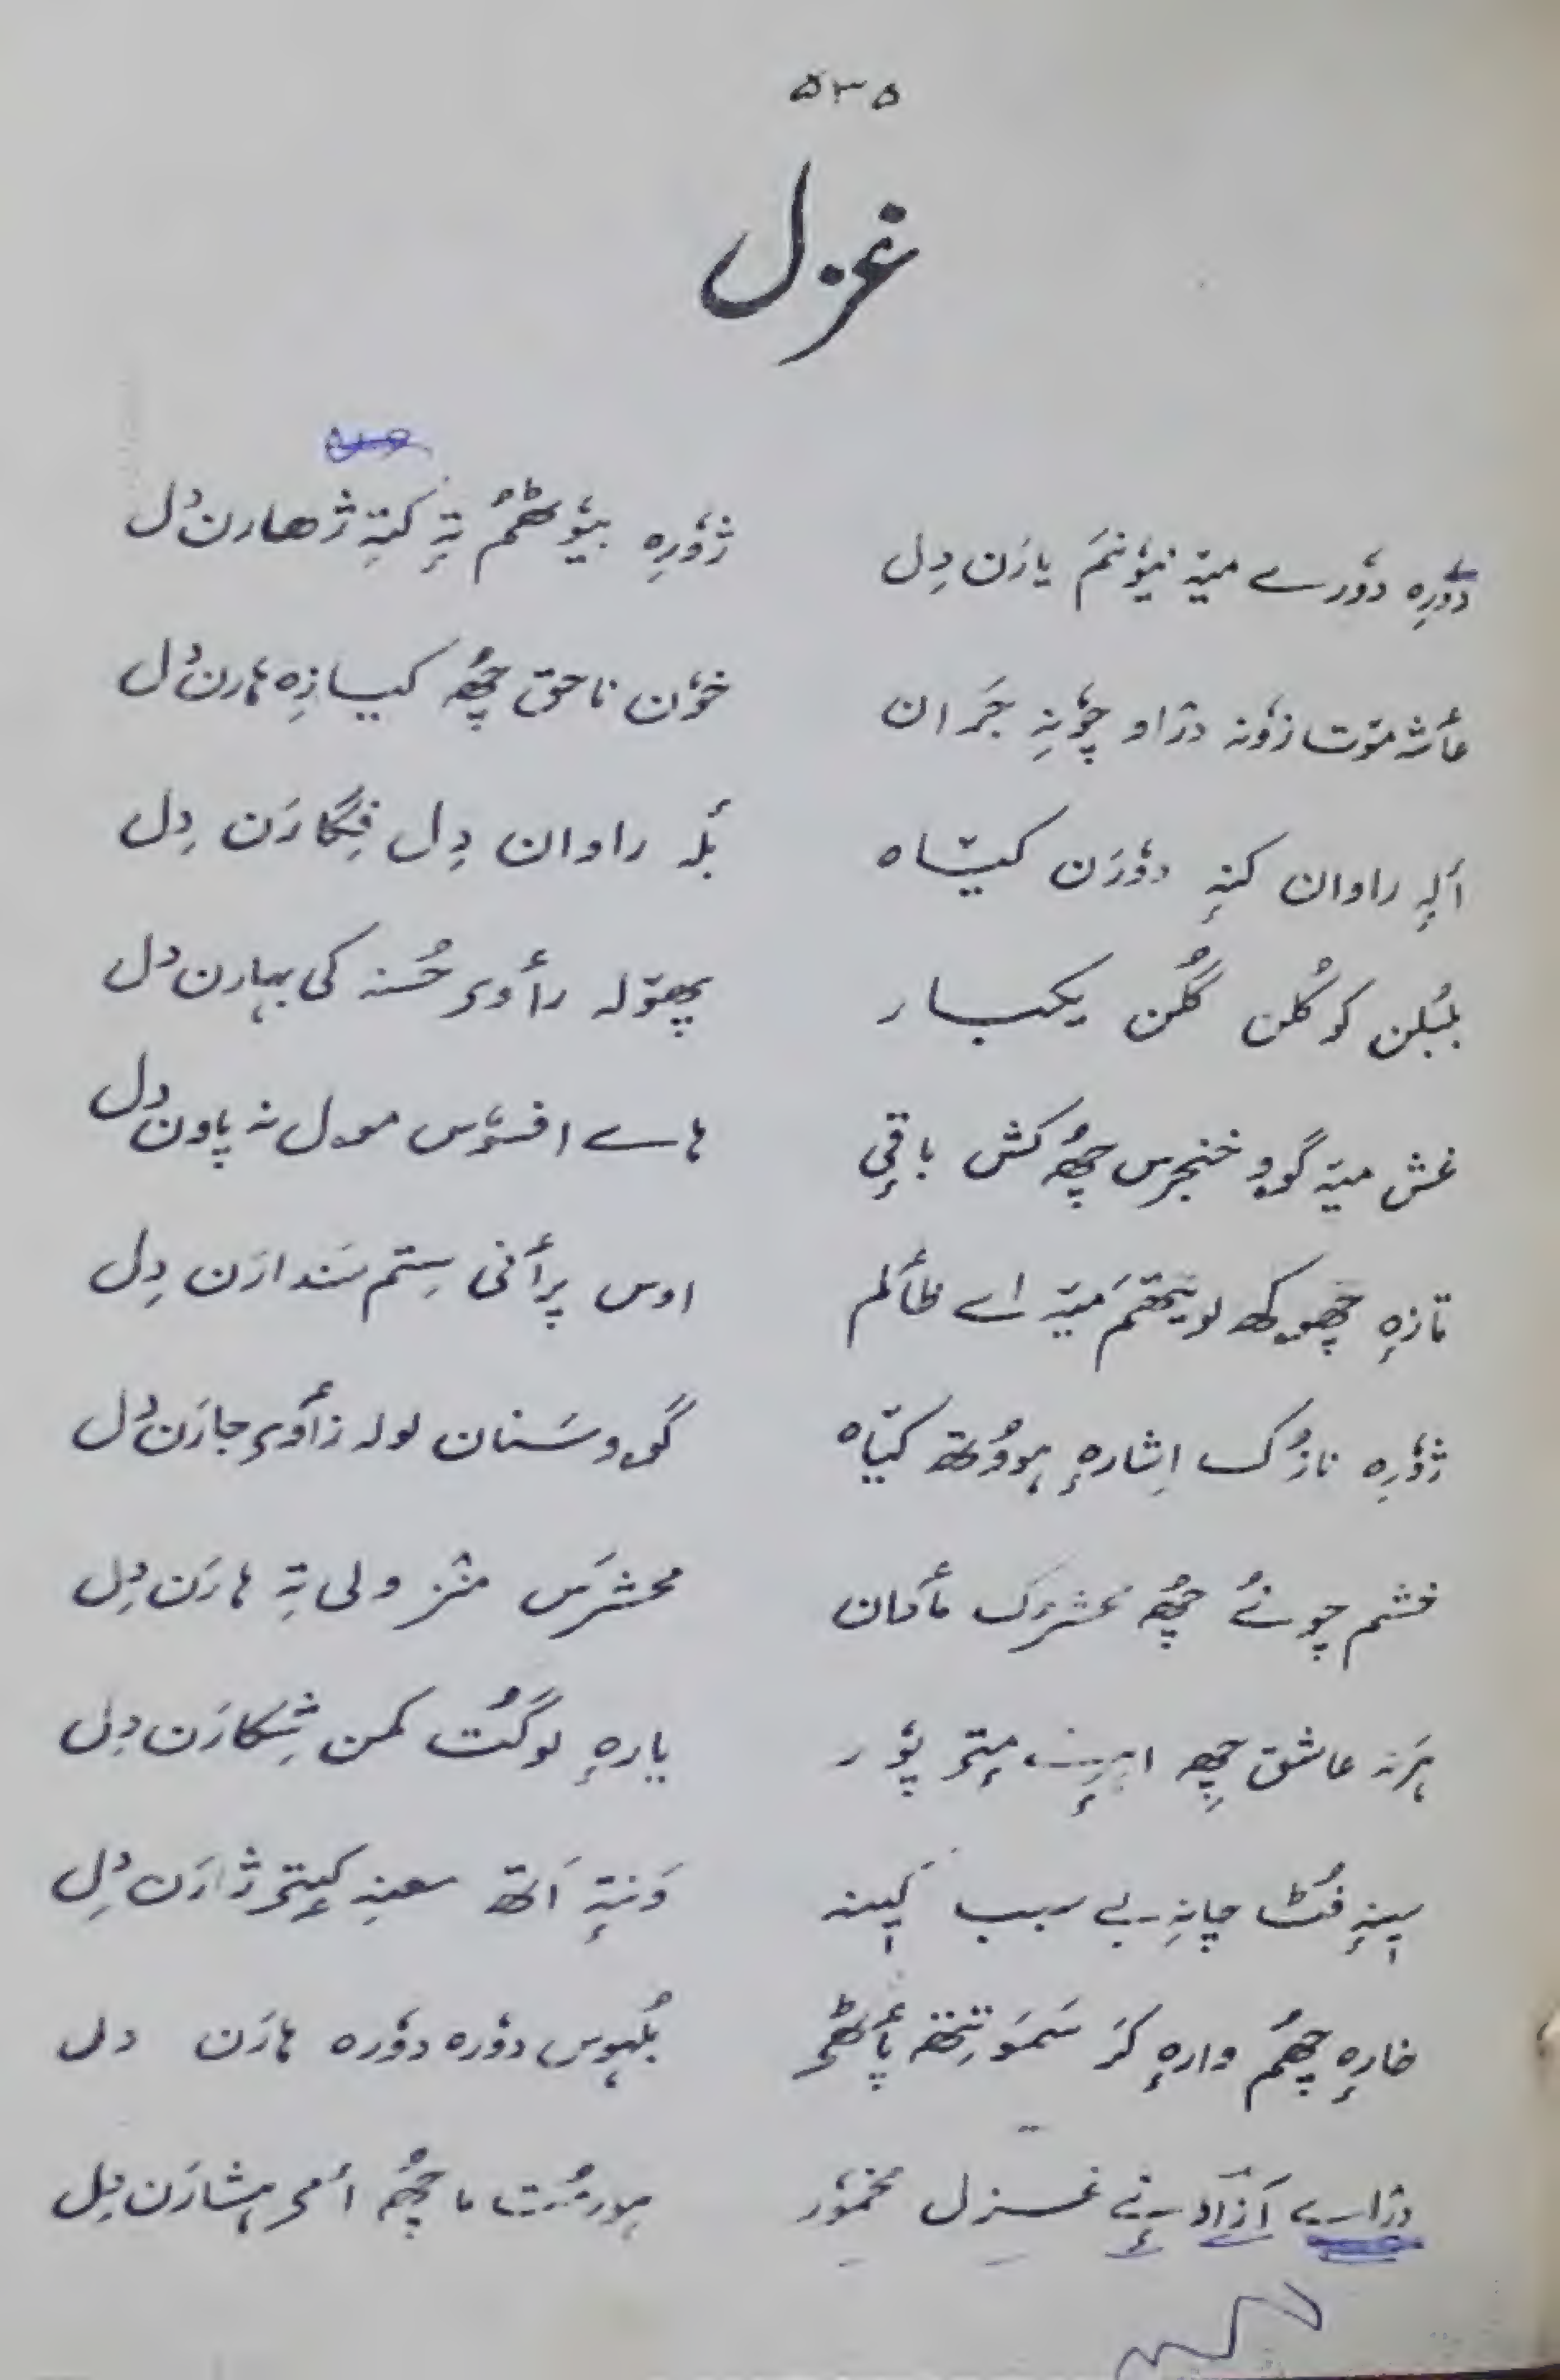 ۵۳۵
غزل
دوٗرِہ دوٗرے میٚہ نیوٗنمَ یارَن دِل ژوٗرِہ بیوٗٹھمُ تہٕ کتہِ ژھارن دِل
عٲشہ متوت زوٗنہ دراو چوٗنہِ جَران خوٗن ناحق چھُ کیازِہ ہارن دِل
أکہِ راوان کنہٕ دوٗرَن کیٚاہ بٔلہ راوان دِل فِگارَن دِل
بلبُلن کوکُلن گُلن یکبار پھۆلہ رأوی حُسنہ کی بہارن دل
غش میٚہ گوو خنجرس چھُ کش باقی ہاے افسوٗس مول نہ پاون دِل
تازہٕ چھوکھ لو میٚہ اے ظٲلم اوس پرٲنی سِتم سَندارَن دِل
ژوٗرِہ نازُک اِشارہٕ ہووُتھ کیٚاہ گوو سَنان لولہ زٲوی جارَن دِل
خشم چونُے چھُ محشرُک مٲدان محشرَس منٛز ولی تہِ ہارَن دِل
ہرَنہ عاشق چھِ پوٗر یارہٕ لوگُت کمن شِکارَن دِل
سینہٕ فُٹ چانہِ بے سبب کینہ وَنتہٕ اَتھ سینہ کیتھ ژارَن دِل
خارہٕ چھُم وارہٕ کَر سَمَو تِتھہ پٲٹھی بُلہوس دوٗرہ دوٗرہ ہارَن دل
دراے آزادنے غزل مخموٗر ہورمُت ما چھُ أمی ہشارَن دِل